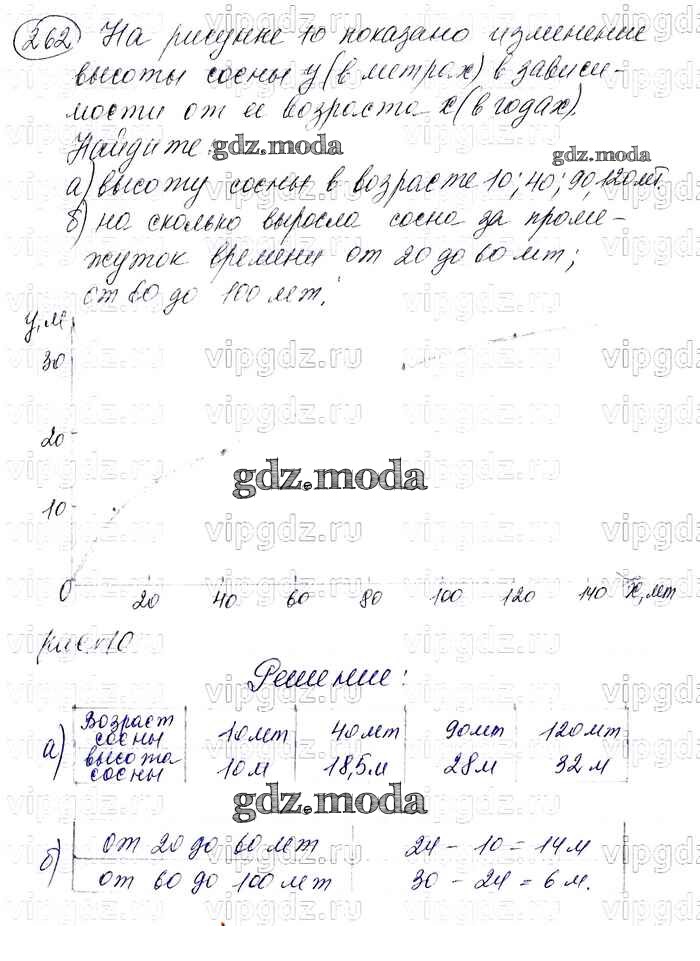 262 На рисунке 10 показано изменение
высоты сосны у (в метрах) в зависи-
мости от ее возраста х (в годах).
Найдите:
gdz.moda
gdz.moda
а) высоту сосны в возрасте 10; 40; 90, 120 лет.
б) на сколько выросла сосна за проме-
жуток времени от 20 до 60 лет;
от 60 до 100 лет.
у, м
30
20
gdz.moda
10
0 20 40 60 80 100 120 140 х, лет
рис. 10
Решение:
а) Возраст сосны 10 лет 40 лет 90 лет 120 лет
высота сосны 10 м 18,5 м 28 м 32 м
gdz.moda
б) от 20 до 60 лет 24 - 10 = 14 м
от 60 до 100 лет 30 - 24 = 6 м.
vipgdz.ru